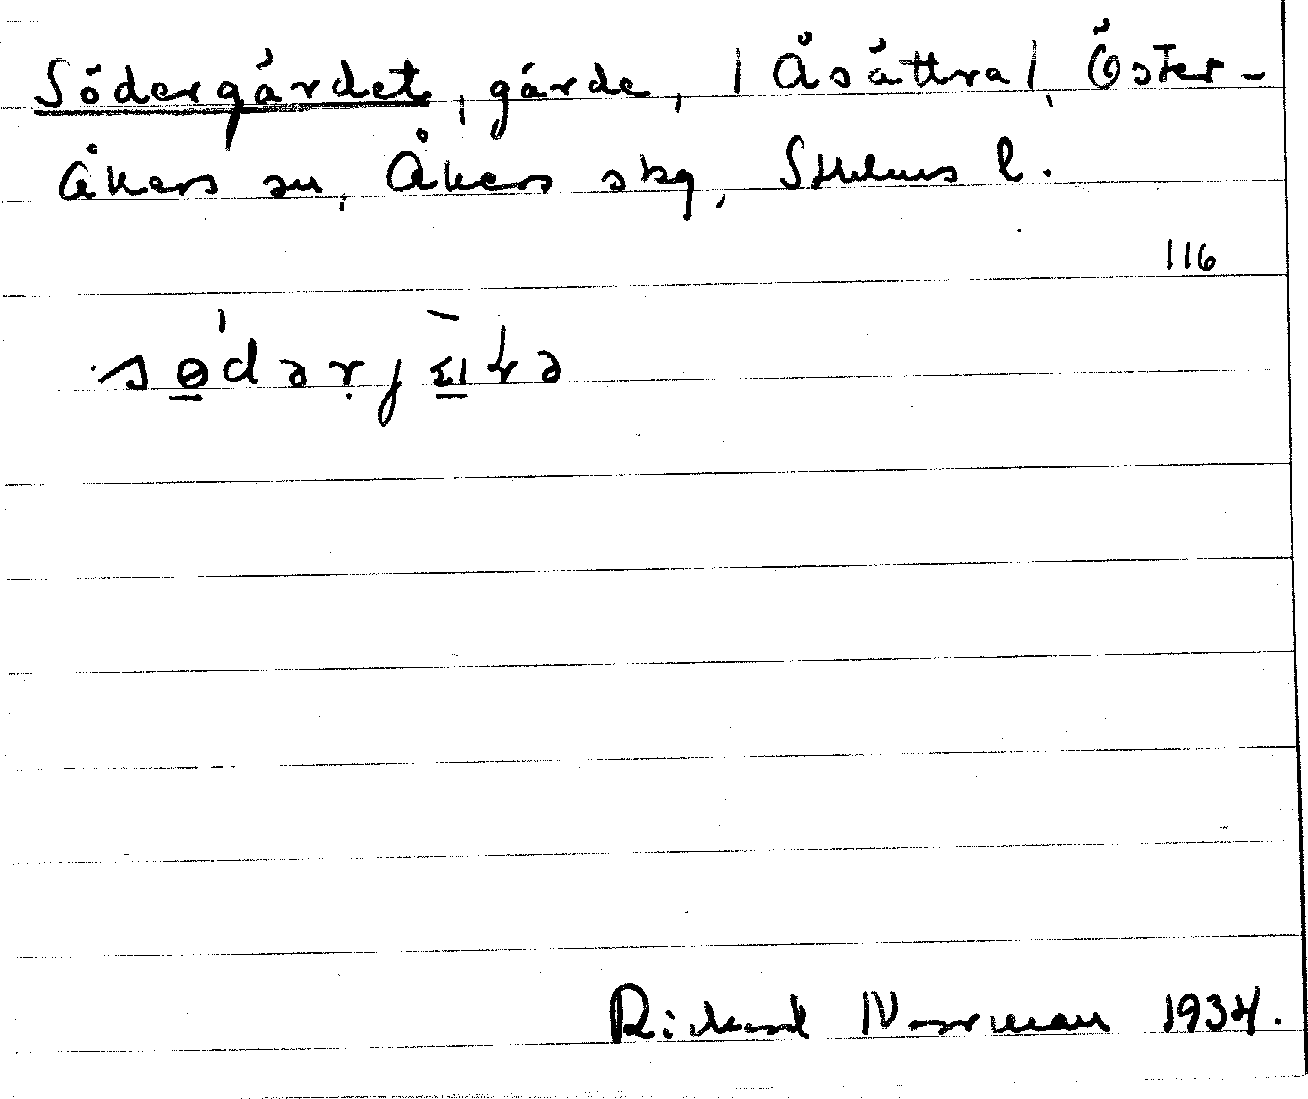 Södergärdet, gärde, (Åsättra), Öster-
Åkers sn, Åkers skg, Sthlms l.
116
Rickard Norrman 1934.